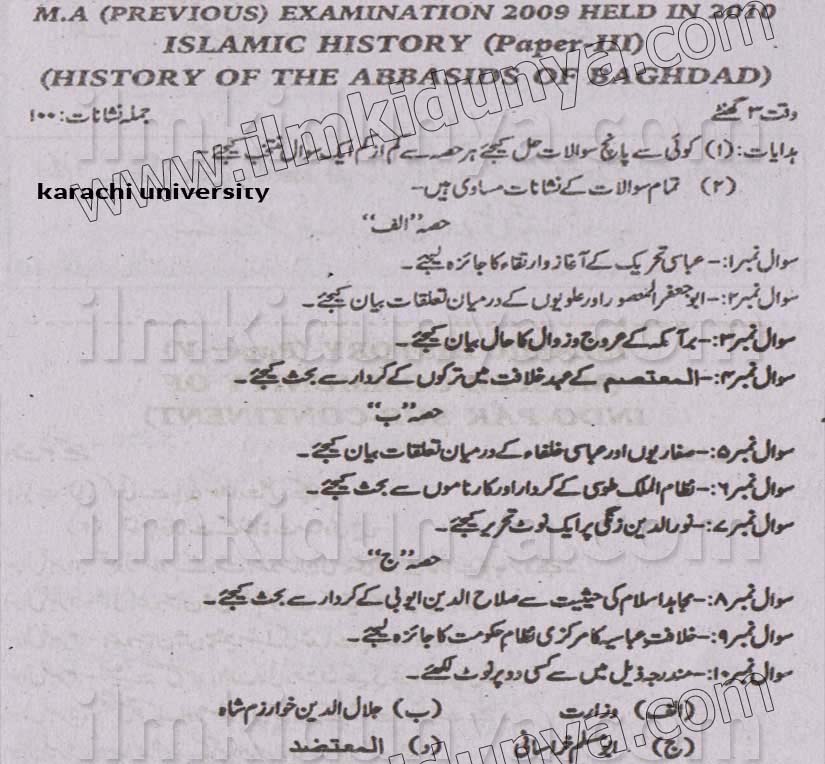 M.A (PREVIOUS) EXAMINATION 2009 HELD IN 2010
ISLAMIC HISTORY (Paper-III)
(HISTORY OF THE ABBASIDS OF BAGHDAD)
وقت ۳ گھنٹے جملہ نشانات: ۱۰۰
ہدایات: (۱) کوئی سے پانچ سوالات حل کیجئے ہر حصہ سے کم از کم ایک سوال منتخب کیجئے۔
(۲) تمام سوالات کے نشانات مساوی ہیں۔
karachi university
حصہ "الف"
سوال نمبر ۱:۔ عباسی تحریک کے آغاز و ارتقاء کا جائزہ لیجئے۔
سوال نمبر ۲:۔ ابو جعفر المنصور اور علویوں کے درمیان تعلقات بیان کیجئے۔
سوال نمبر ۳:۔ برآمکہ کے عروج و زوال کا حال بیان کیجئے۔
سوال نمبر ۴:۔ المعتصم کے عہد خلافت میں ترکوں کے کردار سے بحث کیجئے۔
حصہ "ب"
سوال نمبر ۵:۔ صفاریوں اور عباسی خلفاء کے درمیان تعلقات بیان کیجئے۔
سوال نمبر ۶:۔ نظام الملک طوسی کے کردار اور کارناموں سے بحث کیجئے۔
سوال نمبر ۷:۔ نور الدین زنگی پر ایک نوٹ تحریر کیجئے۔
حصہ "ج"
سوال نمبر ۸:۔ مجاہد اسلام کی حیثیت سے صلاح الدین ایوبی کے کردار سے بحث کیجئے۔
سوال نمبر ۹:۔ خلافت عباسیہ کا مرکزی نظام حکومت کا جائزہ لیجئے۔
سوال نمبر ۱۰:۔ مندرجہ ذیل میں سے کسی دو پر نوٹ لکھئے۔
(الف) وزارت (ب) جلال الدین خوارزم شاہ
(ج) ابو مسلم خراسانی (د) المعتضد
www.ilmkidunya.com
www.ilmkidunya.com
ilmkidunya.com
ilmkidunya.com
ilmkidunya.com
ilmkidunya.com